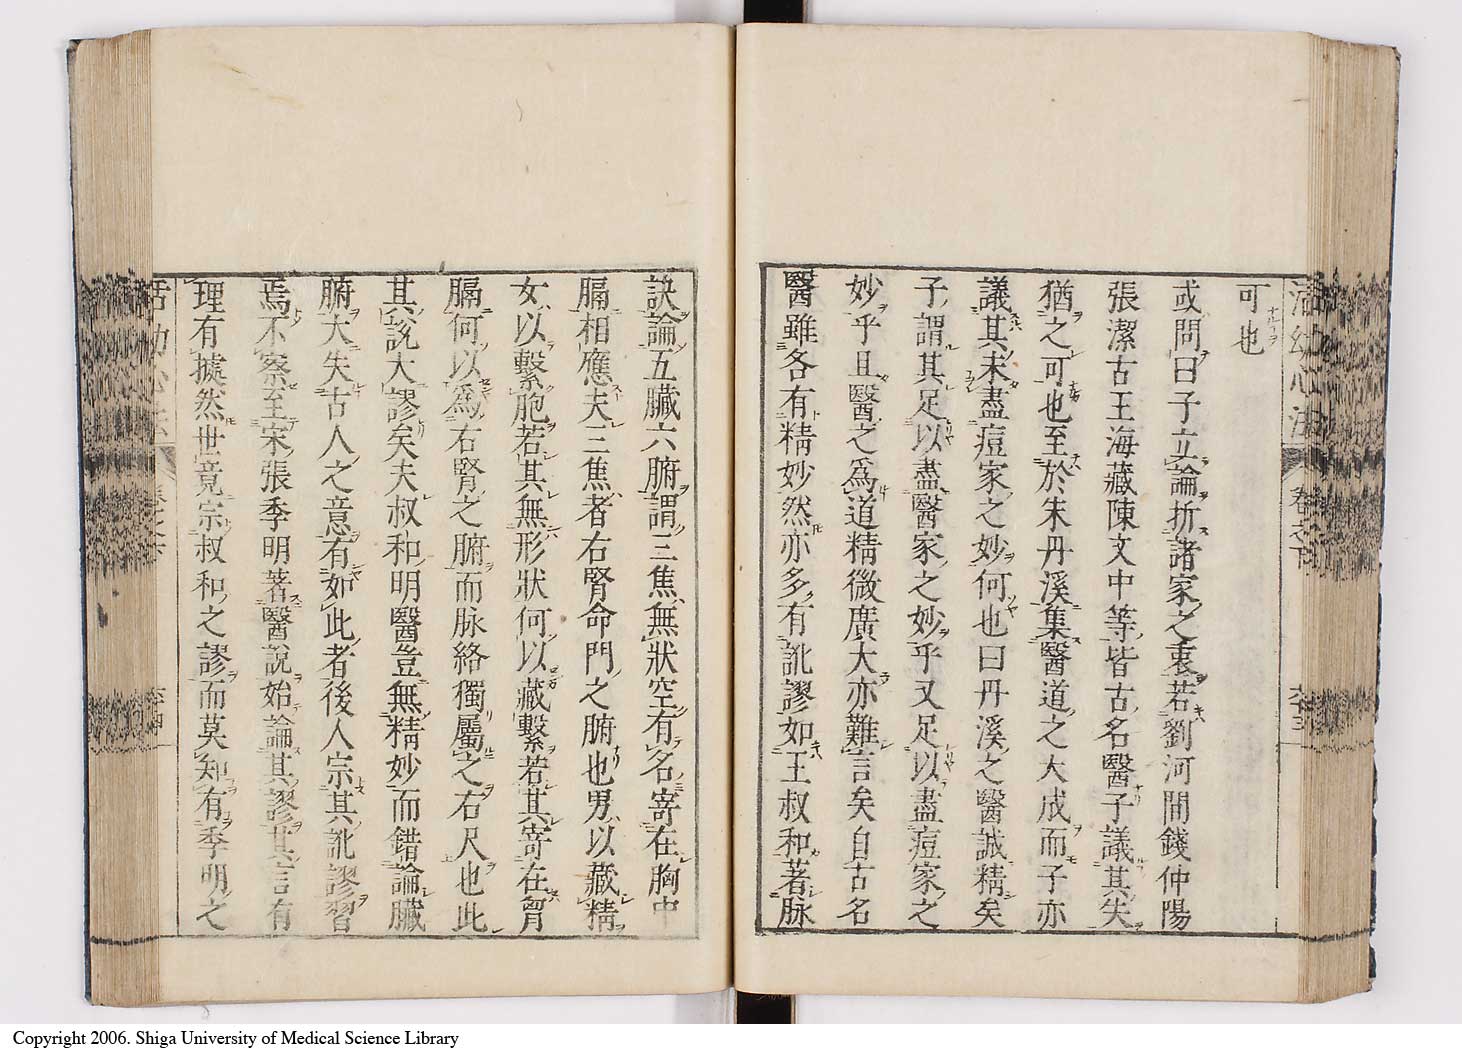 可也
或問曰子立論折諸家之衷若劉河間錢仲陽
張潔古王海藏陳文中等皆古名醫子議其失
猶之可也至於朱丹溪集醫道之大成而子亦
議其未盡痘家之妙何也曰丹溪之醫誠精矣
子謂其足以盡醫家之妙乎又足以盡痘家之
妙乎且醫之爲道精微廣大亦難言矣自古名
醫雖各有精妙然亦多有訛謬如王叔和著脉
訣論五臟六腑謂三焦無狀空有名寄在胸中
膈相應夫三焦者右腎命門之腑也男以藏精
女以繫胞若其無形狀何以藏繫若其寄在胷
膈何以爲右腎之腑而脉絡獨屬之右尺也此
其説大謬矣夫叔和明醫豈無精妙而錯論臟
腑大失古人之意有如此者後人宗其訛謬習
焉不察至宋張季明著醫説始論其謬其言有
理有據然世竟宗叔和之謬而莫知有季明之
活幼心法
卷之下
Copyright 2006. Shiga University of Medical Science Library